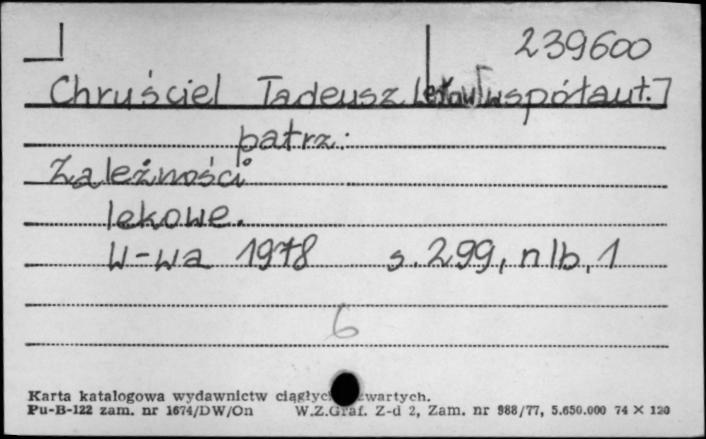 239600
Chruściel Tadeusz [współaut.]
patrz:
Zależności
lekowe.
W-wa 1978 s. 299, nlb, 1
6
Karta katalogowa wydawnictw ciągłyc wartych.
Pu-B-122 zam. nr 1674/DW/On W.Z.Graf. Z-d 2, Zam. nr 988/77, 5.650.000 74 × 120